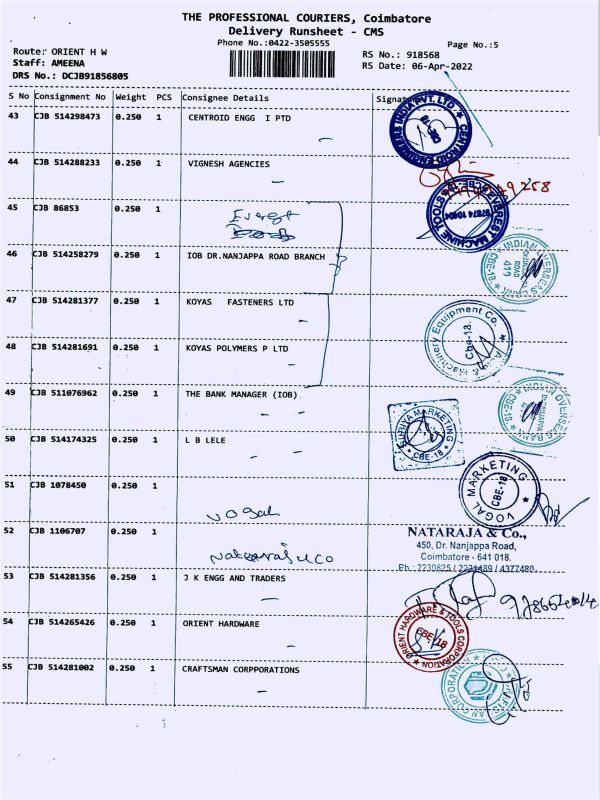 THE PROFESSIONAL COURIERS, Coimbatore
Delivery Runsheet - CMS
Phone No.:0422-3505555
Page No.:5
Route: ORIENT H W
Staff: AMEENA
DRS No.: DCJB91856805
RS No.: 918568
RS Date: 06-Apr-2022
S No Consignment No Weight PCS Consignee Details
43 CJB 514298473 0.250 1 CENTROID ENGG I PTD
44 CJB 514288233 0.250 1 VIGNESH AGENCIES
45 CJB 86853 0.250 1 Everest
EVEREST MACHINE TOOLS
46 CJB 514258279 0.250 1 IOB DR.NANJAPPA ROAD BRANCH
INDIAN OVERSEAS BANK
ROAD
419
CBE-18
47 CJB 514281377 0.250 1 KOYAS FASTENERS LTD
Machinery Equipment Co.
Cbe-18.
48 CJB 514281691 0.250 1 KOYAS POLYMERS P LTD
49 CJB 511076962 0.250 1 THE BANK MANAGER (IOB)
OVERSEAS BANK
CBE-18
50 CJB 514174325 0.250 1 L B LELE
SURYA MARKETING
CBE-18
51 CJB 1078450 0.250 1
Vogal
VOGAL MARKETING
CBE-18
52 CJB 1106707 0.250 1
Nataraj & CO
NATARAJA & Co.,
450, Dr. Nanjappa Road,
Coimbatore - 641 018.
Ph : 2230825 / 2231489 / 4377480
53 CJB 514281356 0.250 1 J K ENGG AND TRADERS
54 CJB 514265426 0.250 1 ORIENT HARDWARE
ORIENT HARDWARE & TOOLS CORPORATION
CBE-18
55 CJB 514281002 0.250 1 CRAFTSMAN CORPPORATIONS